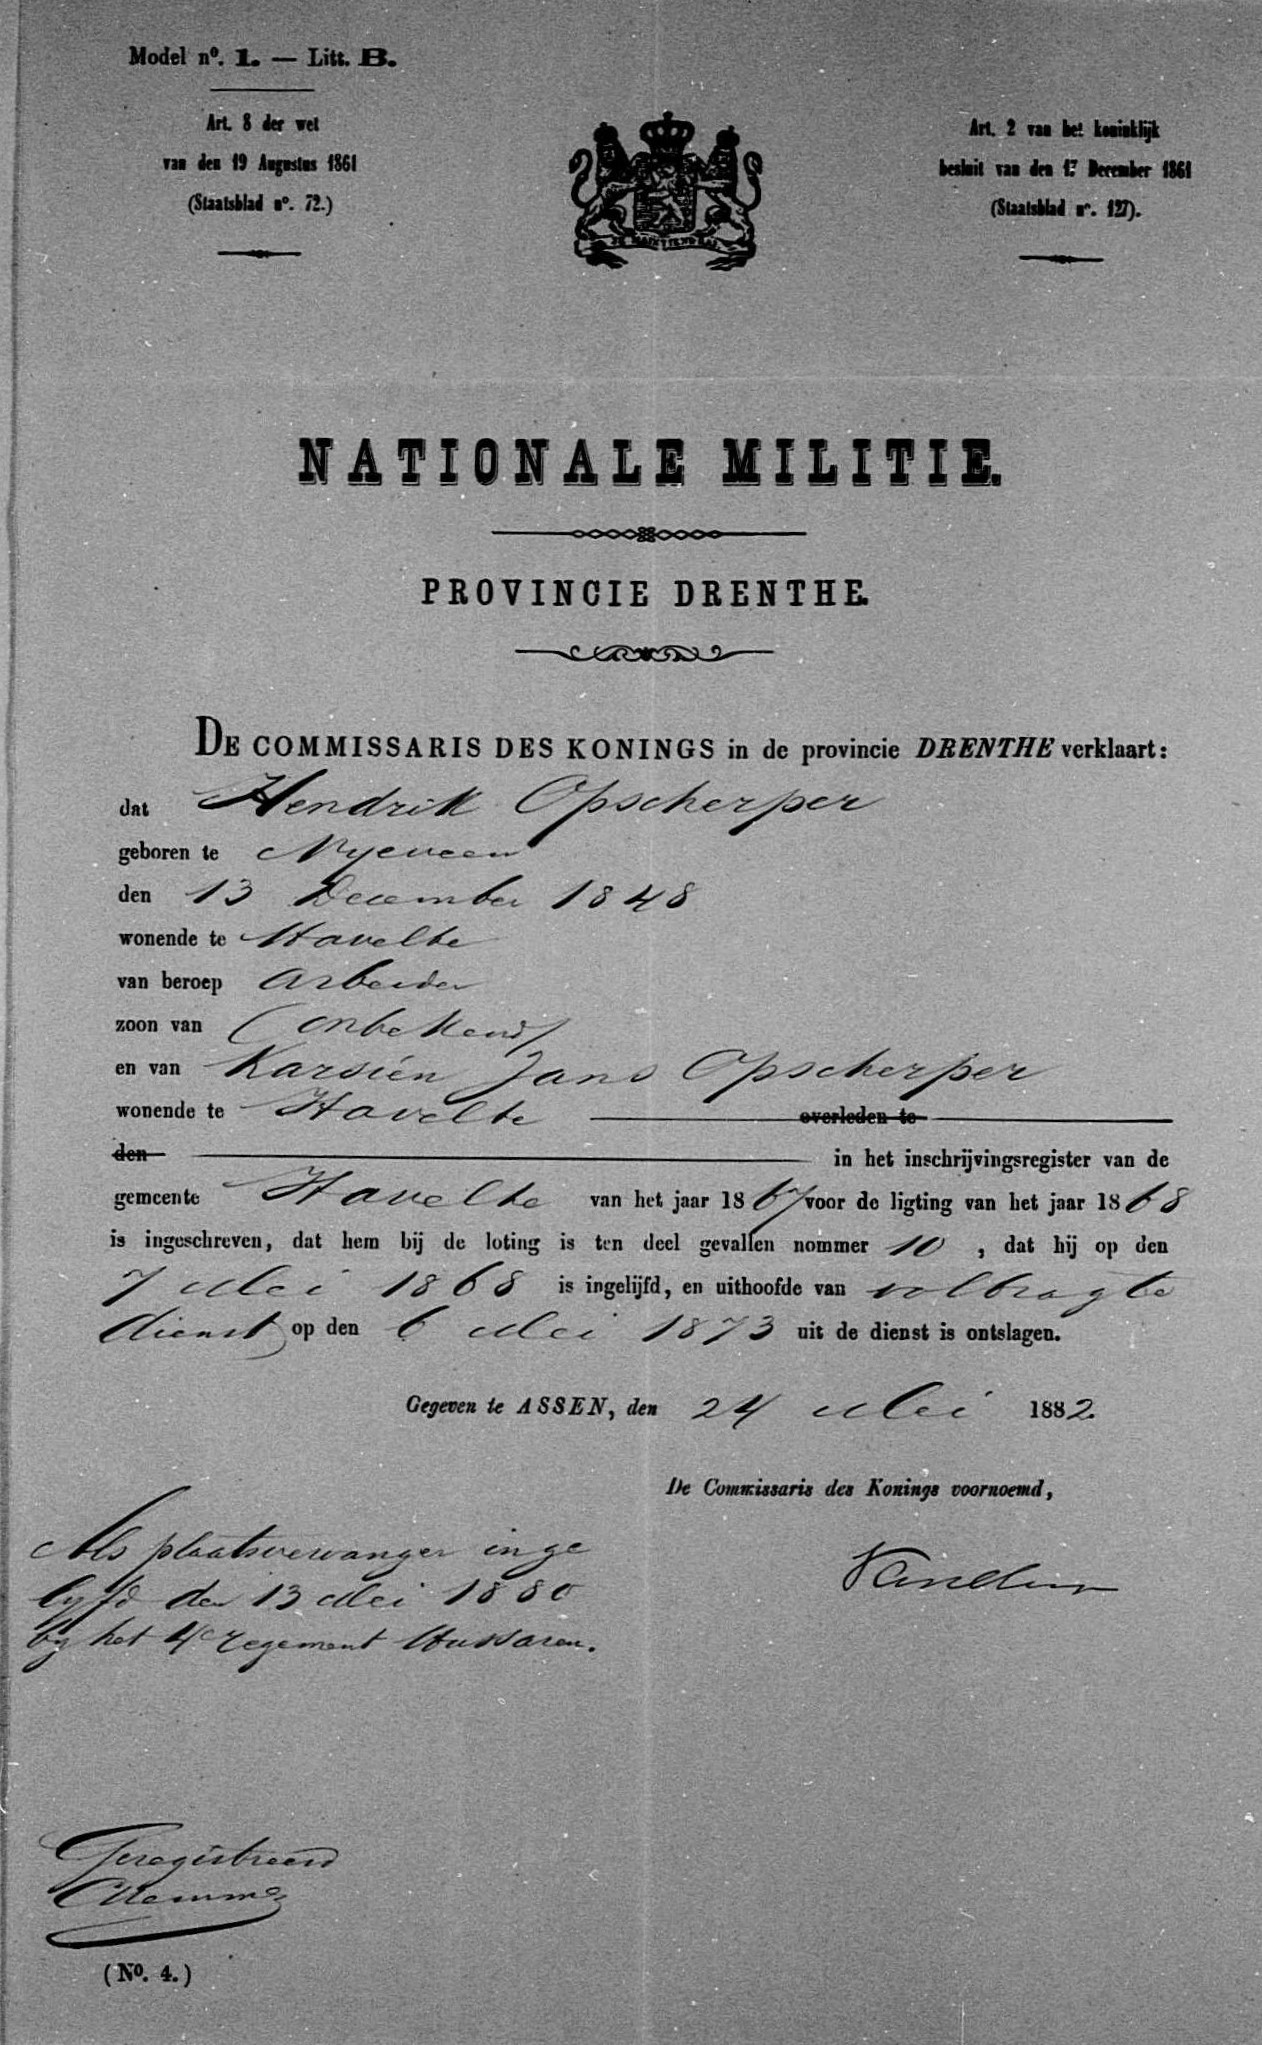 Model nº. 1. — Litt. B.
Art. 8 der wet
van den 19 Augustus 1861
(Staatsblad nº. 72.)
Art. 2 van het koninklijk
besluit van den 17 December 1861
(Staatsblad nº. 127).
JE MAINTIENDRAI
NATIONALE MILITIE.
PROVINCIE DRENTHE.
DE COMMISSARIS DES KONINGS in de provincie DRENTHE verklaart:
dat Hendrik Opscherper
geboren te Nyeveen
den 13 December 1848
wonende te Havelte
van beroep Arbeider
zoon van (onbekend)
en van Karsien Jans Opscherper
wonende te Havelte overleden te
den in het inschrijvingsregister van de
gemeente Havelte van het jaar 1867 voor de ligting van het jaar 1868
is ingeschreven, dat hem bij de loting is ten deel gevallen nommer 10, dat hij op den
7 Mei 1868 is ingelijfd, en uithoofde van volbragte
dienst op den 6 Mei 1873 uit de dienst is ontslagen.
Gegeven te ASSEN, den 24 Mei 1882.
De Commissaris des Konings voornoemd,
Als plaatsvervanger inge
lyfd den 13 Mei 1880
by het 4e regement Hussaren.
Geregistreerd
(Nº. 4.)